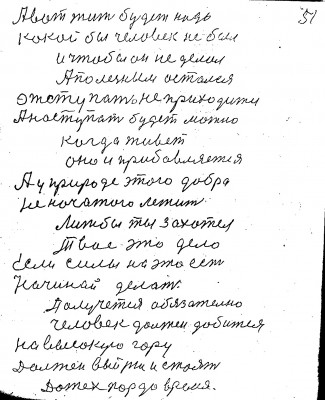 51
А вот жит будет нидь
какой бы человек не был
и чтобы он не делал
А полезным остался
отступать не приходити
А наступат будет можно
когда живет
оно и прибовляется
А у природе этого добра
не початого летит
Лиж бы ты захотел
твое это дело
Если силы на это есть
Начинай делать
Получется обязательно
человек должен добится
на высокую гору
Должен выйти и стоят
До тех пор до время.